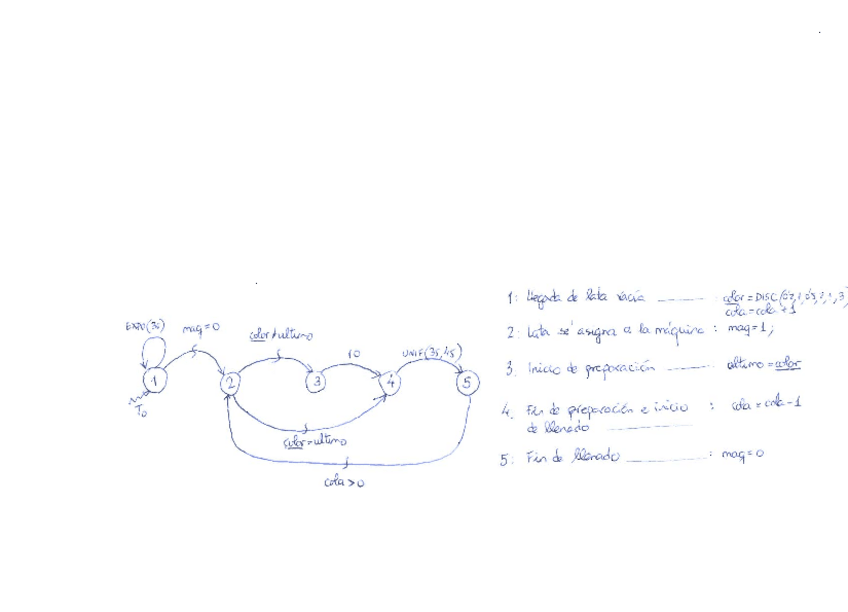 EXPO(35)
maq=0
color≠ultimo
10
UNIF(35,45)
1
2
3
4
5
T0
color=ultimo
cola>0
1: llegada de lata vacía : color=DISC(
cola=cola+1
2: Lata se asigna a la máquina : maq=1;
3. Inicio de preparación ultimo=color
4. Fin de preparación e inicio : cola=cola-1
de llenado
5: Fin de llenado : maq=0